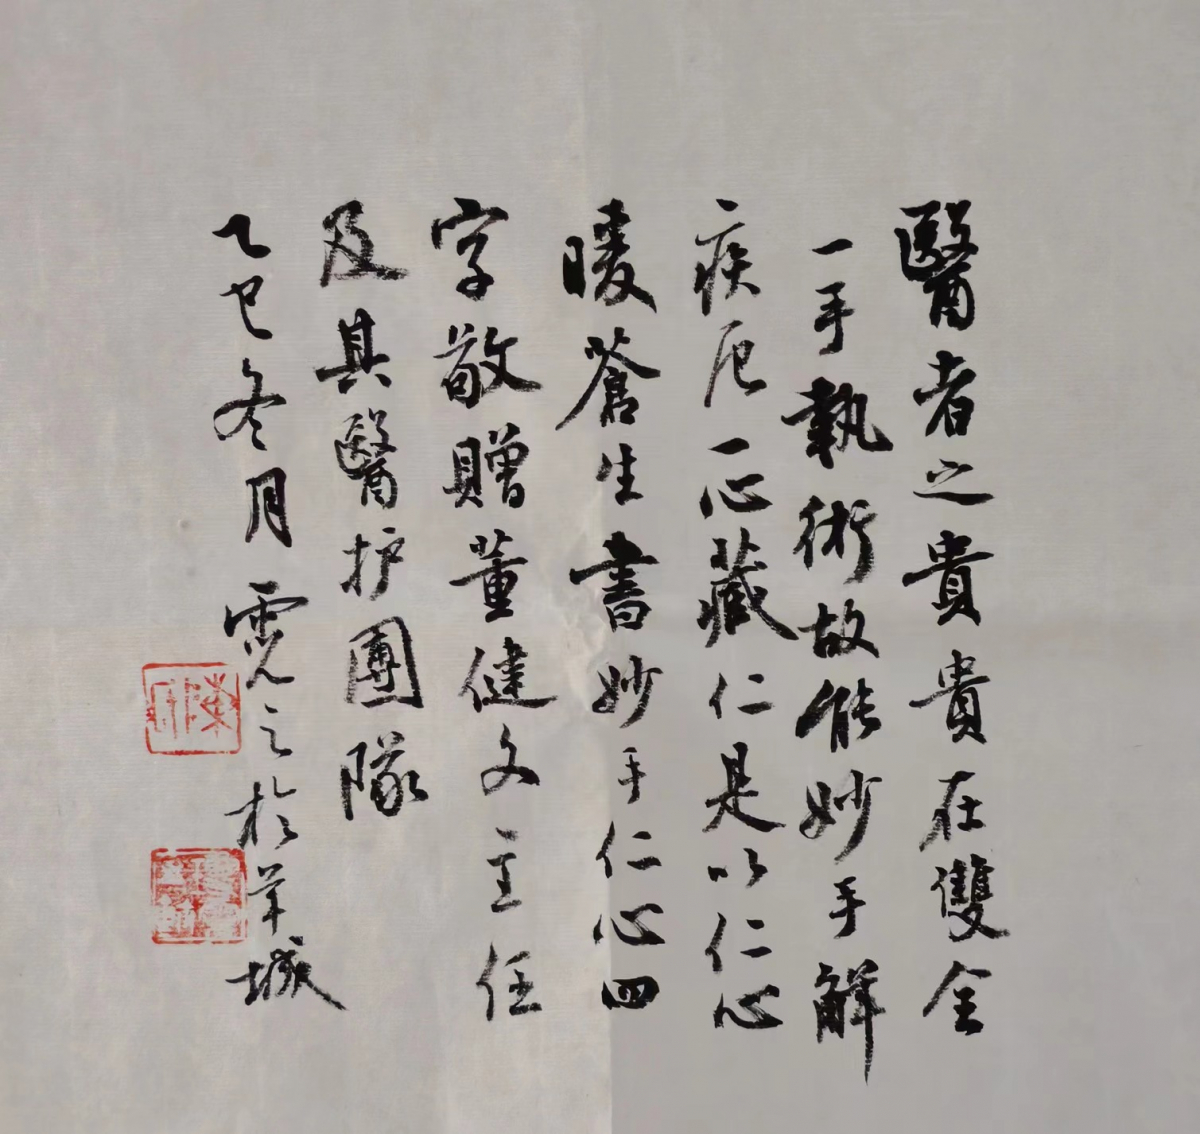 醫者之貴貴在雙全
一手執術故能妙手解
疾厄一心藏仁是以仁心
暖蒼生書妙手仁心四
字敬贈董健文主任
及其醫护團隊
乙巳冬月霓之於羊城